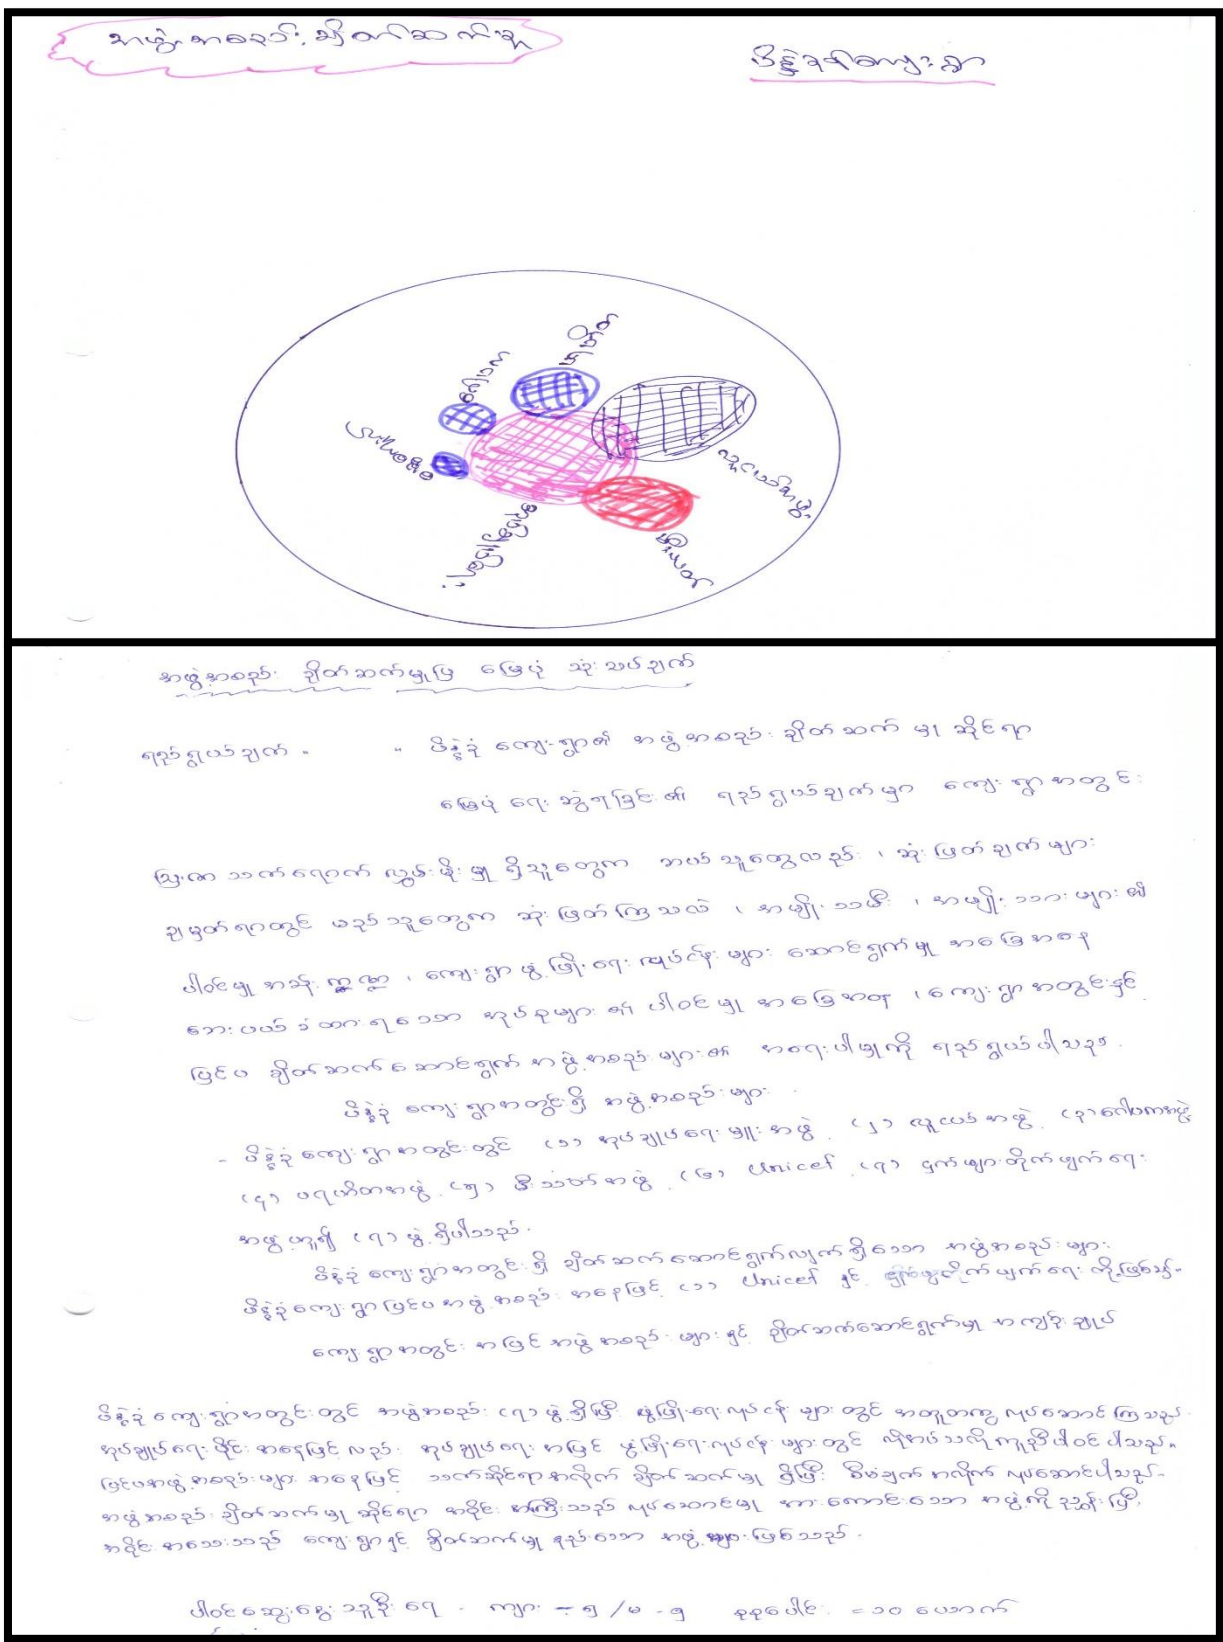 အဖွဲ့အစည်း ချိတ်ဆက်မှု
ကျေးရွာ
ပရဟိတ
ဂေါပက
လူငယ်အဖွဲ့
အုပ်ချုပ်ရေး
မီးသတ်
အဖွဲ့အစည်း ချိတ်ဆက်မှုပြ မြေပုံ သုံးသပ်ချက်
ရည်ရွယ်ချက် ။ ။ ဖိနွဲခုံ ကျေးရွာ၏ အဖွဲ့အစည်း ချိတ်ဆက် မှု ဆိုင်ရာ
မြေပုံ ရေး ဆွဲရခြင်း ၏ ရည်ရွယ်ချက်မှာ ကျေးရွာအတွင်း
ဩဇာ သက်ရောက် လွှမ်းမိုး မှု ရှိသူတွေက ဘယ်သူတွေလည်း ၊ ဆုံးဖြတ်ချက်များ
ချမှတ်ရာတွင် မည်သူတွေက ဆုံးဖြတ်ကြသလဲ ၊ အမျိုးသမီး ၊ အမျိုးသားများ ၏
ပါဝင်မှု အခန်းကဏ္ဍ ၊ ကျေးရွာ ဖွံ့ဖြိုးရေး လုပ်ငန်းများ ဆောင်ရွက်မှု အခြေအနေ
ဘေးဖယ်ခံထားရသော အုပ်စုများ ၏ ပါဝင်မှု အခြေအနေ ၊ ကျေးရွာအတွင်းနှင့်
ပြင်ပ ချိတ်ဆက်ဆောင်ရွက် အဖွဲ့အစည်းများ၏ အရေးပါမှုကို ရည်ရွယ်ပါသည်။
ဖိနွဲခုံ ကျေးရွာအတွင်းရှိ အဖွဲ့အစည်းများ
- ဖိနွဲခုံကျေးရွာအတွင်းတွင် (၁) အုပ်ချုပ်ရေးမှူးအဖွဲ့ (၂) လူငယ်အဖွဲ့ (၃) ဂေါပကအဖွဲ့
(၄) ပရဟိတအဖွဲ့ (၅) မီးသတ်အဖွဲ့ (၆) Unicef (၇) ငှက်ဖျားတိုက်ဖျက်ရေး
အဖွဲ့ဟူ၍ (၇) ဖွဲ့ရှိပါသည်။
ဖိနွဲခုံ ကျေးရွာအတွင်းရှိ ချိတ်ဆက်ဆောင်ရွက်လျက်ရှိသော အဖွဲ့အစည်းများ
ဖိနွဲခုံကျေးရွာပြင်ပအဖွဲ့အစည်း အနေဖြင့် (၁) Unicef နှင့် တိုက်ဖျက်ရေး တို့ဖြစ်သည်။
ကျေးရွာအတွင်း အပြင် အဖွဲ့အစည်းများနှင့် ချိတ်ဆက်ဆောင်ရွက်မှု အကျဉ်းချုပ်
ဖိနွဲခုံ ကျေးရွာအတွင်းတွင် အဖွဲ့အစည်း (၇) ဖွဲ့ရှိပြီး ဖွံ့ဖြိုးရေးလုပ်ငန်းများတွင် အတူတကွ လုပ်ဆောင်ကြသည်။
အုပ်ချုပ်ရေးပိုင်း အနေဖြင့်လည်း အုပ်ချုပ်ရေးအပြင် ဖွံ့ဖြိုးရေးလုပ်ငန်းများတွင် လိုအပ်သလိုကူညီပါဝင်ပါသည်။
ပြင်ပအဖွဲ့အစည်းများအနေဖြင့် သက်ဆိုင်ရာအလိုက် ချိတ်ဆက်မှုရှိပြီး စီမံချက်အလိုက် လုပ်ဆောင်ပါသည်။
အဖွဲ့အစည်း ချိတ်ဆက်မှုဆိုင်ရာ အဝိုင်းအကြီးသည် လုပ်ဆောင်မှု အားကောင်းသော အဖွဲ့ကို ညွှန်းပြီး
အဝိုင်းအသေးသည် ကျေးရွာနှင့် ချိတ်ဆက်မှု နည်းသော အဖွဲ့များဖြစ်သည်။
ပါဝင်ဆွေးနွေးသူဦးရေ - ကျား - ၅ / မ - ၅ စုစုပေါင်း = ၁၀ ယောက်